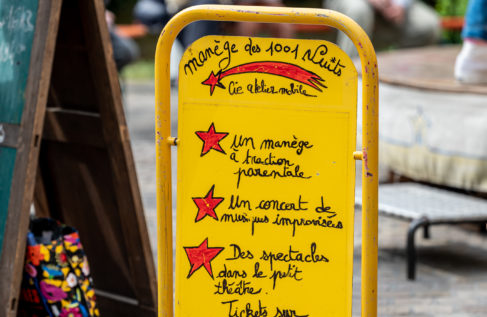 manège des 1001 Nuits
Cie atelier mobile
Un manège
à traction
parentale
Un concert de
musiques improvisées
Des spectacles
dans le p'tit
théâtre.
Tickets sur